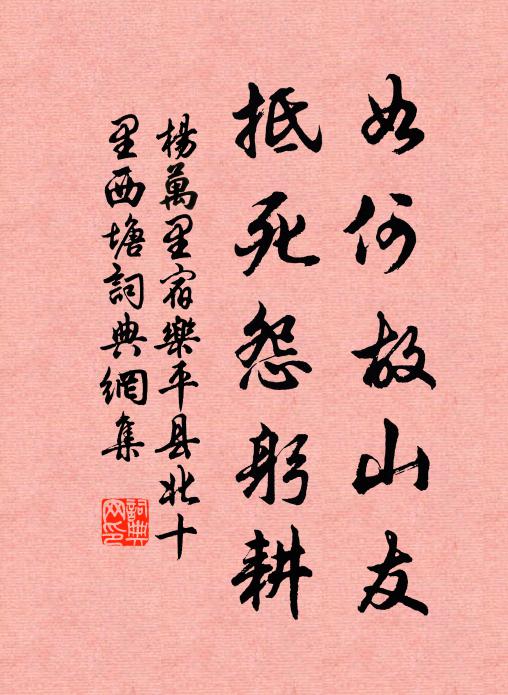 如何故山友
抵死怨躬耕
楊萬里宿樂平县北十
里西塘詞典網集
詞典
网印